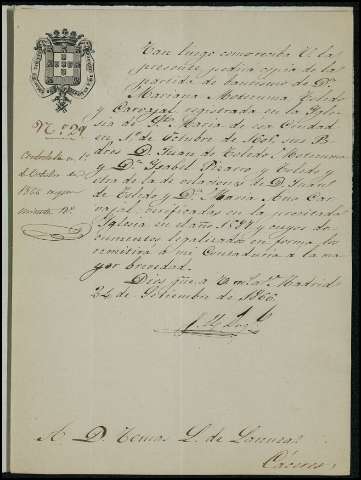 Tan luego como reciba U. la
presente pedirá copia de la
partida de bautismo de Dª
Mariana Moctezuma, Toledo
y Carvajal registrada en la Igle-
sia de Sta. María de esa Ciudad
en 1º de Octubre de sus Pa-
dres D. Juan de Toledo Moctezuma
y Dª Isabel Pizarro, y Toledo y
de la de velaciones de D. Juan
de Toledo y Dª Maria Ana Car-
vajal, verificadas en la precitada
Iglesia en el año y cuyos do-
cumentos legalizados en forma los
remitirá á mi Contaduría á la ma-
yor brevedad.
Dios gue. á U. ms. as. Madrid
24 de Setiembre de 1866
Nº 29
Contestada en 1º
de Octubre de
1866 según
minuta Nº
A D. Tomas L. de
Cáceres.